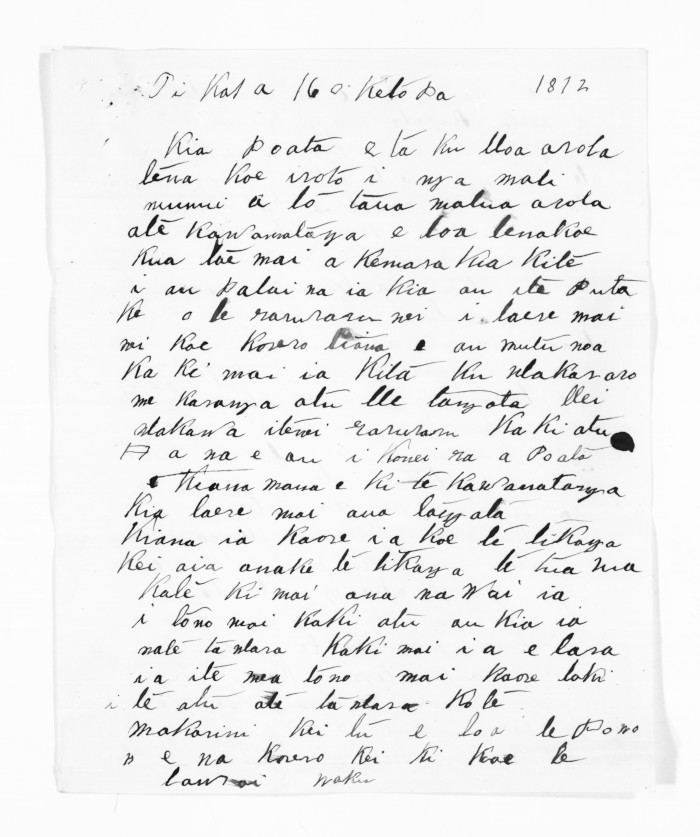 Ti Kat a 16 o Ketopa 1872
Kia Poata e ta ku hoa aroha
tena koe iroto i nga mati
nunui a to taua matua aroha
ate Kawanatanga e hoa tenakoe
Kua tae mai a Kemara Kia Kite
i au Patai na ia Kia au ite Puta
Ke o te raruraru nei i haere mai
nei koe korero tiana e au mutu noa
Ka Ki mai ia Kita ku
me karanga atu he tangata Hei
itenei raruraru Ka Ki atu
a na e au i Konei ra a Poata
Kiana mana e Ki te Kawanatanga
Kia haere mai ana tangata
Kiana ia Kaore ia koe te tikanga
Kei aia anake te tikanga te tua
Kate Ki mai ana na Wai ia
i tono mai Kaki atu au Kia ia
nate Kaki mai ia e hara
ia ite mea tono mai Kaore
i te atu ate Kote
Makarini Kei tu e hoa te Pono
o e na Korero Kei ti koe te